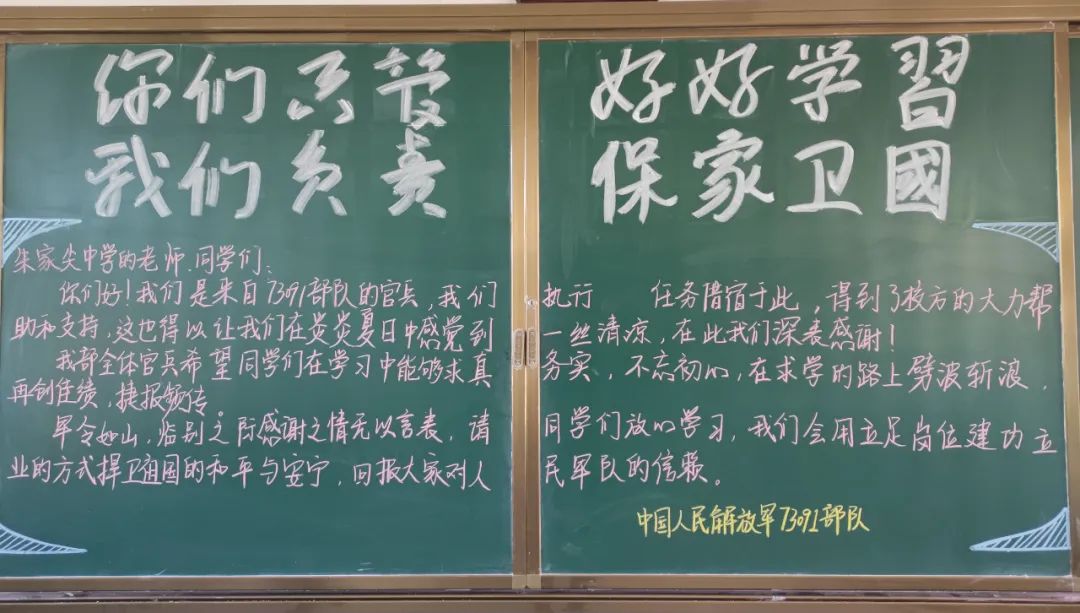 你们只管 好好学習
我们负责 保家卫國
朱家尖中学的老师、同学们:
你们好!我们是来自73091部队的官兵,我们执行 任务借宿于此,得到了校方的大力帮
助和支持,这也得以让我们在炎炎夏日中感觉到一丝清凉,在此我们深表感谢!
我部全体官兵希望同学们在学习中能够求真务实,不忘初心,在求学的路上劈波斩浪,
再创佳绩,捷报频传。
军令如山,临别之际感谢之情无以言表,请同学们放心学习,我们会用立足岗位建功立
业的方式捍卫祖国的和平与安宁,回报大家对人民军队的信赖。
中国人民解放军73091部队